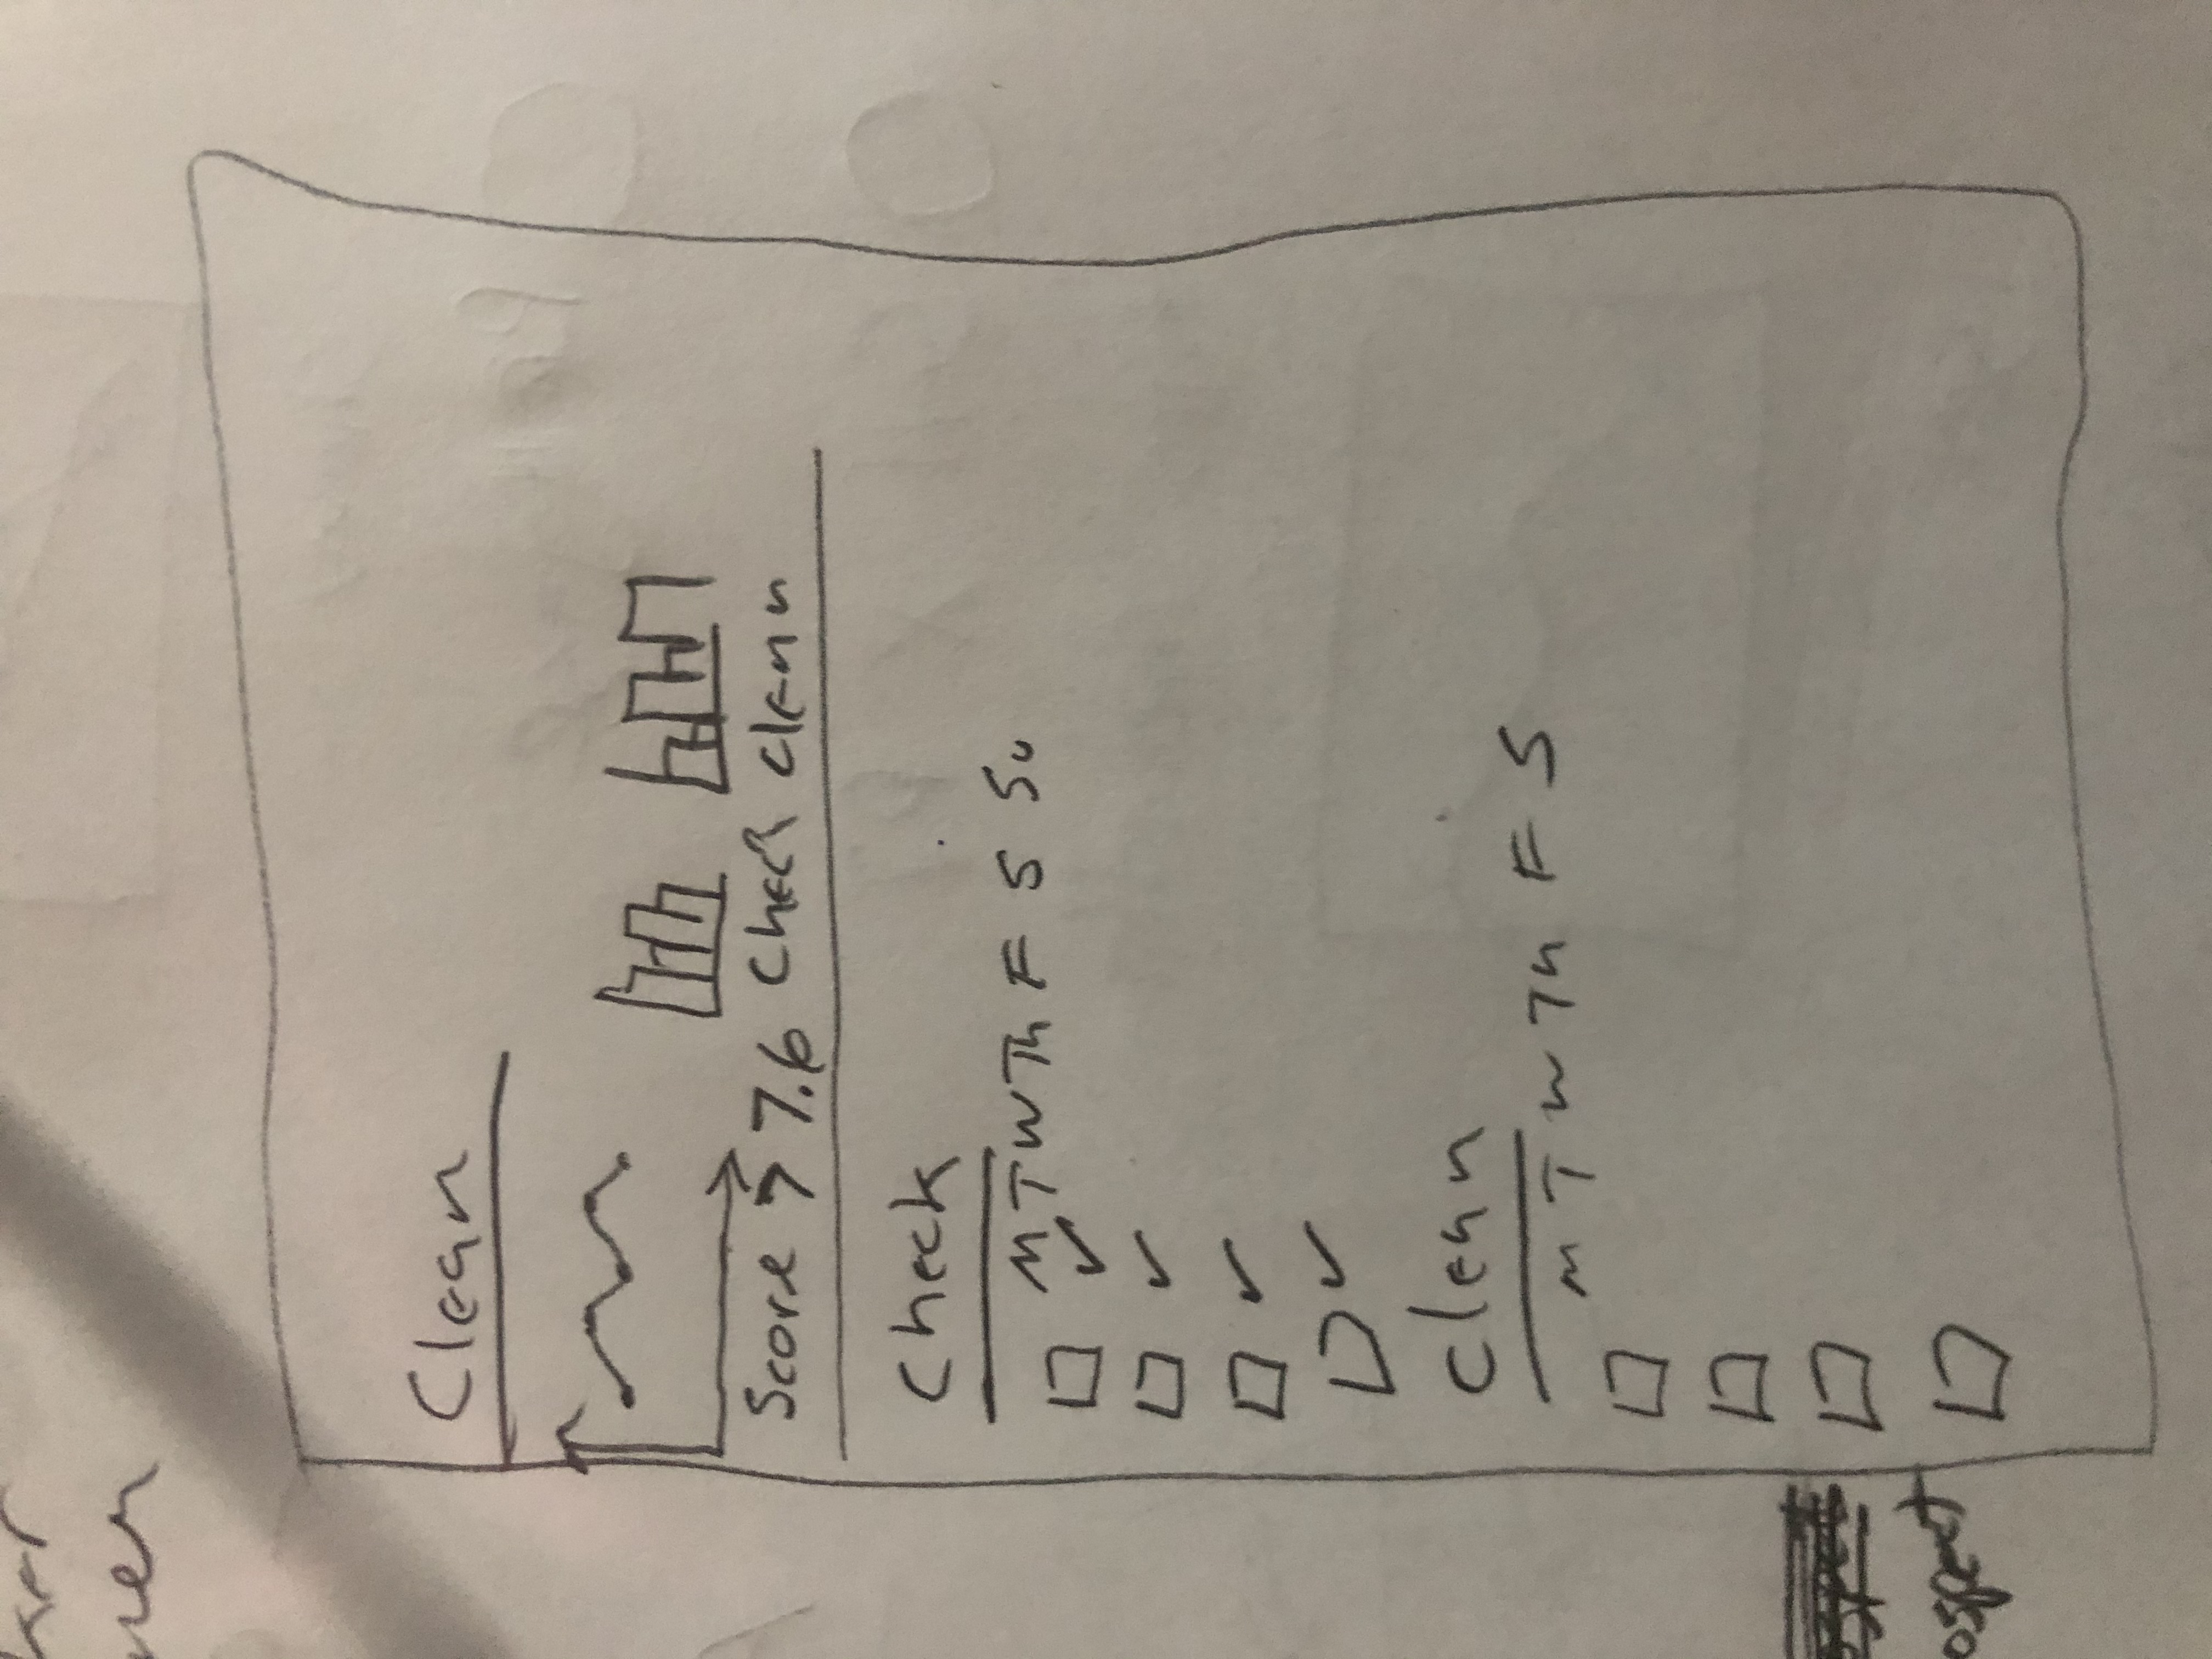 Clean
Score > 7.6 Check clean
Check
M T W Th F S Su
✓
✓
✓
✓
clean
M T W Th F S